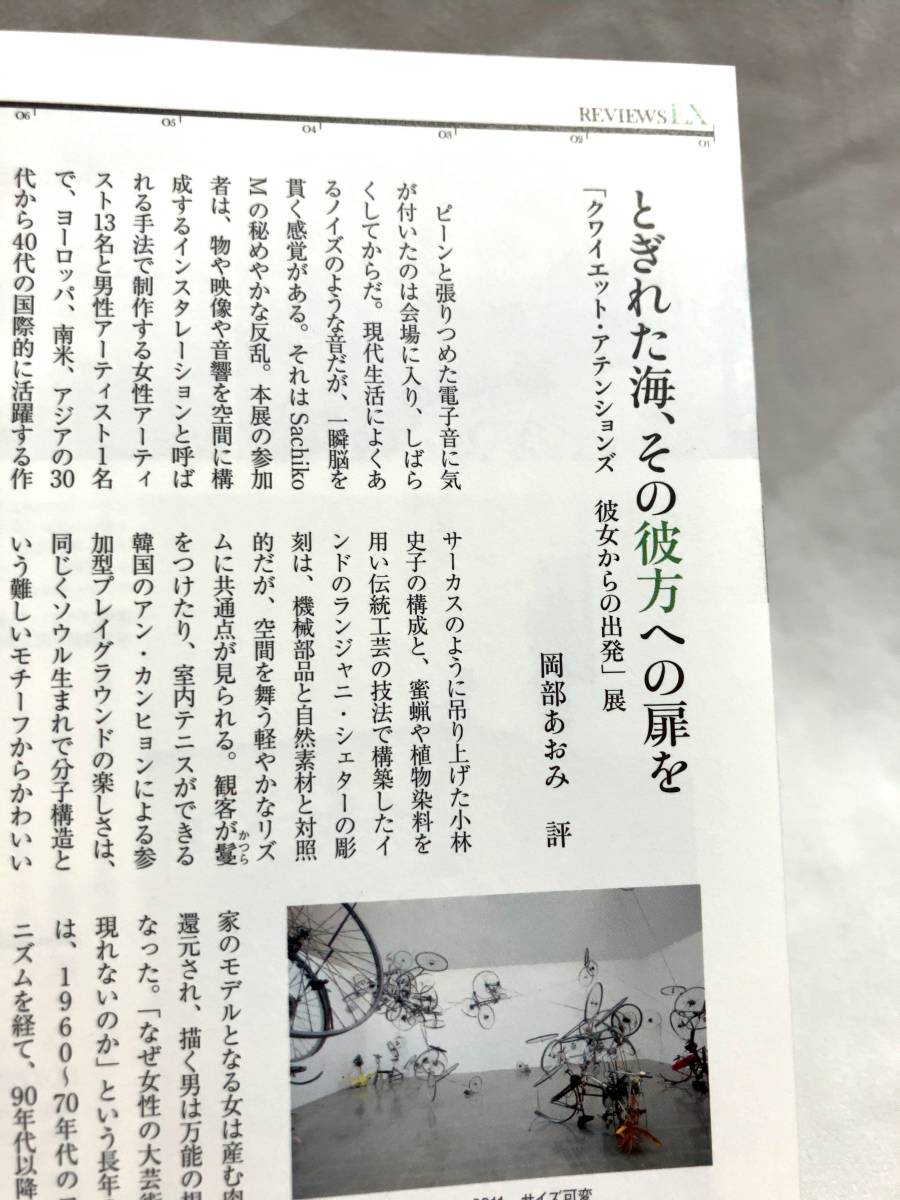 REVIEWS EX
01
02
03
04
05
06
とぎれた海、その彼方への扉を
「クワイエット・アテンションズ　彼女からの出発」展
岡部あおみ　評
ピーンと張りつめた電子音に気
が付いたのは会場に入り、しばら
くしてからだ。現代生活によくあ
るノイズのような音だが、一瞬脳を
貫く感覚がある。それはSachiko
Mの秘めやかな反乱。本展の参加
者は、物や映像や音響を空間に構
成するインスタレーションと呼ば
れる手法で制作する女性アーティ
スト13名と男性アーティスト1名
で、ヨーロッパ、南米、アジアの30
代から40代の国際的に活躍する作
サーカスのように吊り上げた小林
史子の構成と、蜜蝋や植物染料を
用い伝統工芸の技法で構築したイ
ンドのランジャニ・シェターの彫
刻は、機械部品と自然素材と対照
的だが、空間を舞う軽やかなリズ
ムに共通点が見られる。観客が鬘
かつら
をつけたり、室内テニスができる
韓国のアン・カンヒョンによる参
加型プレイグラウンドの楽しさは、
同じくソウル生まれで分子構造と
いう難しいモチーフからかわいい
家のモデルとなる女は産む肉
還元され、描く男は万能の
なった。「なぜ女性の大芸術
現れないのか」という長年
は、1960〜70年代の
ニズムを経て、90年代以降
2011　サイズ可変